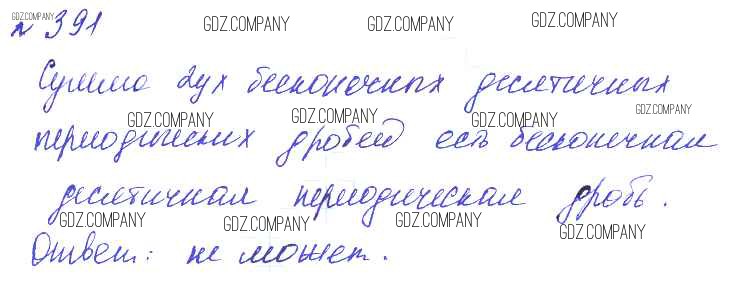 GDZ.COMPANY
№ 391 GDZ.COMPANY GDZ.COMPANY GDZ.COMPANY
Сумма двух бесконочных десятичных
GDZ.COMPANY GDZ.COMPANY GDZ.COMPANY GDZ.COMPANY
периодических дробей есть бесконечная
десятичная периодическая дробь.
GDZ.COMPANY GDZ.COMPANY GDZ.COMPANY GDZ.COMPANY
Ответ: не может.